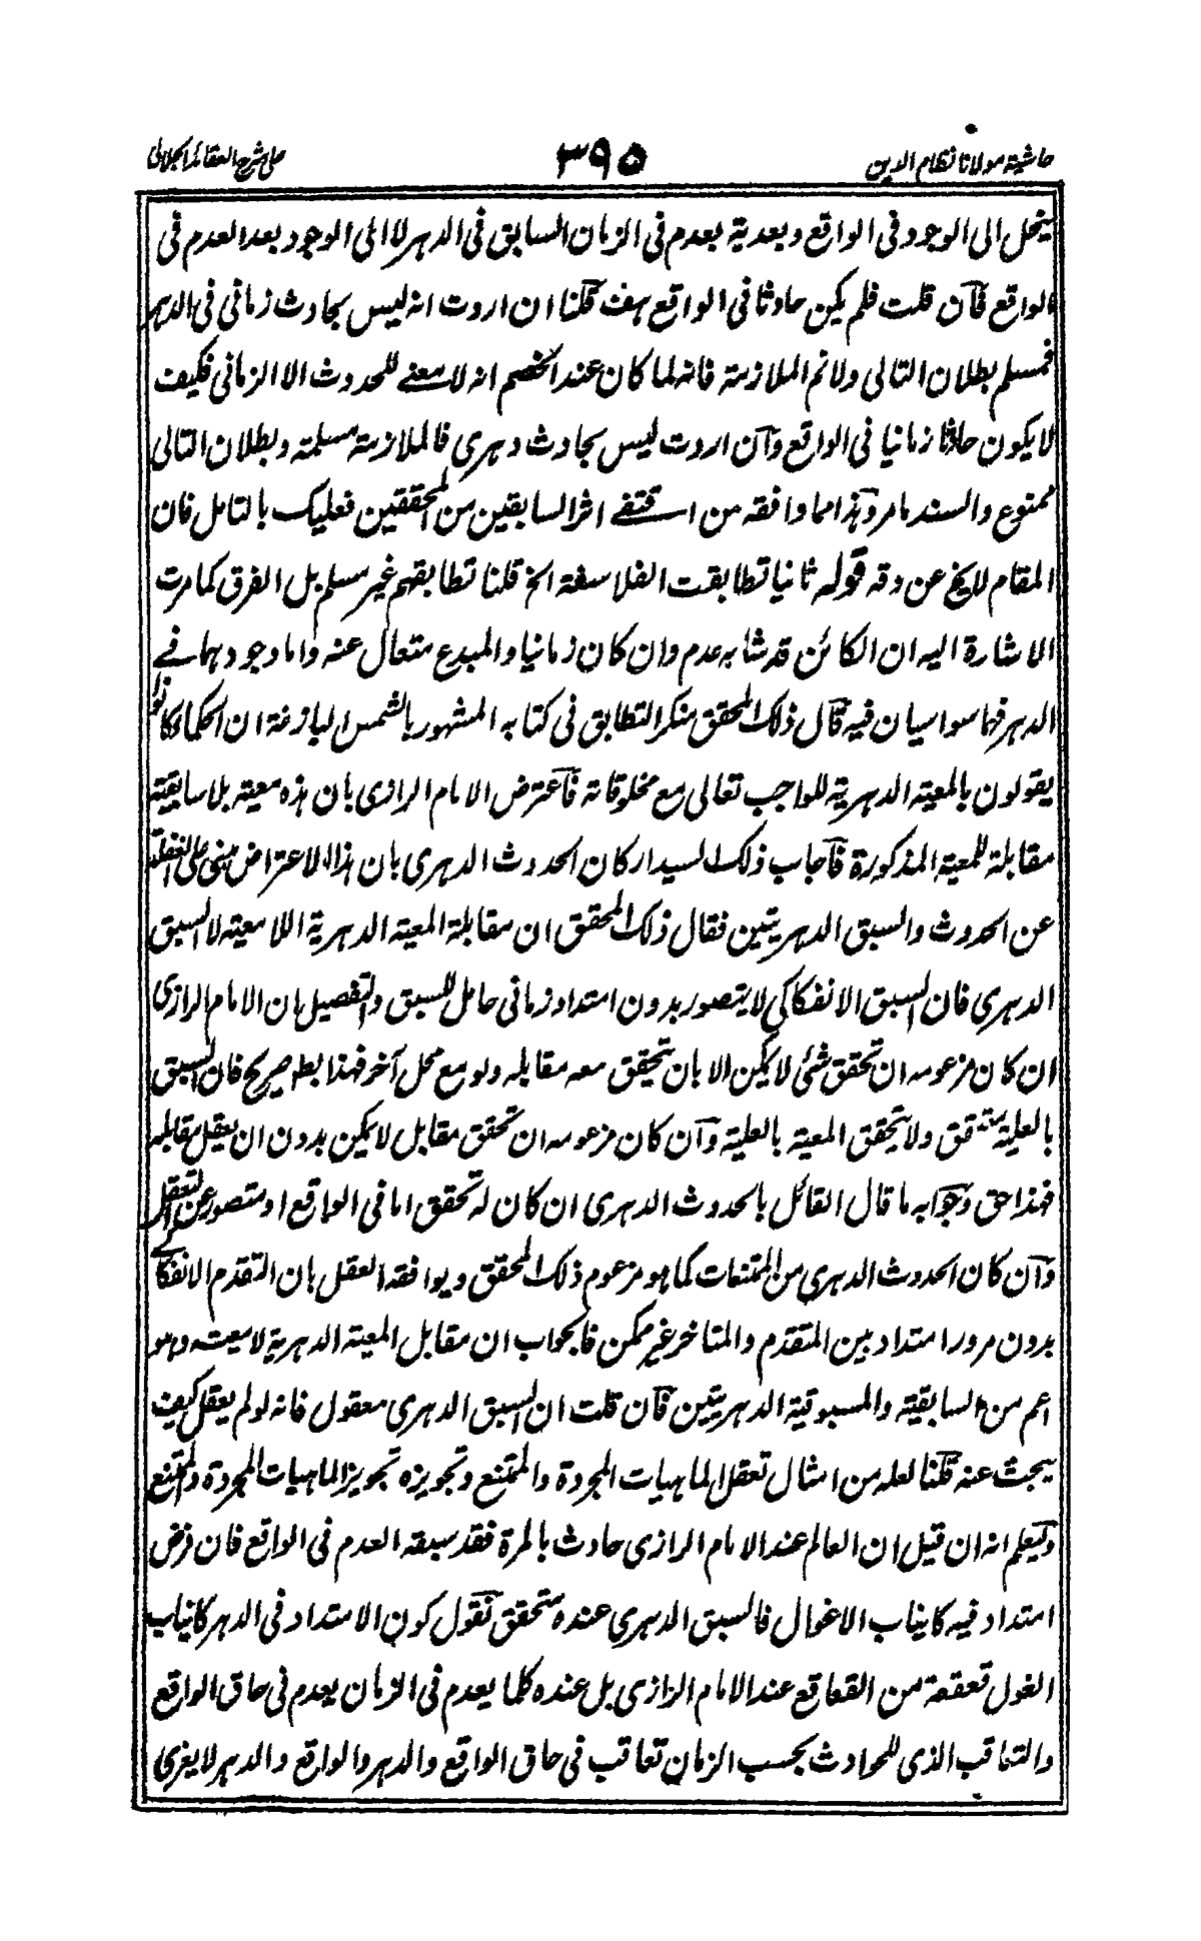 حاشية مولانا نظام الدين ٣٩٥ على شرح العقائد الجلالى
ينحل الى الوجود فى الواقع وبعدية بعدم فى الزمان السابق فى الدهر لا الى الوجود بعد العدم فى
الواقع فان قلت فلم يكن حادثا فى الواقع هف قلنا ان اردت انه ليس بحادث زمانى فى الدهر
فمسلم بطلان التالى ولا نم الملازمة فانه لما كان عند الخصم انه لا معنے للحدوث الا الزمانى فكيف
لا يكون حادثا زمانيا فى الواقع وان اردت ليس بحادث دهرى فالملازمة مسلمة وبطلان التالى
ممنوع والسند مامر وهذا مما وافقه من استقتفے اثر السابقين من المحققين فعليك بالتامل فان
المقام لا يخ عن دقة قوله ثانيا تطابقت الفلاسفة الخ قلنا تطابقهم غير مسلم بل الفرق كما مرت
الاشارة اليه ان الكائن قد شابه عدم وان كان زمانيا والمبدع متعال عنه واما وجودهما فے
الدهر فهما سواسيان فيه قال ذلك المحقق منكر التطابق فى كتابه المشهور بالشمس البازغة ان الحكماء كانوا
يقولون بالمعية الدهرية للواجب تعالى مع مخلوقاته فاعترض الامام الرازى بان هذه معية بلا سابقية
مقابلة للمعية المذكورة فاجاب ذلك السيد اركان الحدوث الدهرى بان هذا الاعتراض مبنى على الغفلة
عن الحدوث والسبق الدهريتين فقال ذلك المحقق ان مقابلة المعية الدهرية اللامعية لا السبق
الدهرى فان السبق الانفكاكى لا يتصور بدون امتداد زمانى حامل للسبق والتفصيل ان الامام الرازى
ان كان مزعومه ان تحقق شئ لا يمكن الا بان يتحقق معه مقابله ولو مع محل آخر فهذا بط صريح فان السبق
بالعلية متحقق ولا يتحقق المعية بالعلية وان كان مزعومه ان تحقق مقابل لا يمكن بدون ان يعقل مقابله
فهذا حق وجوابه ما قال القائل بالحدوث الدهرى ان كان له تحقق اما فى الواقع او متصور عن التعقل
وان كان الحدوث الدهرى من الممتنعات كما هو مزعوم ذلك المحقق ويوافقه العقل بان التقدم الانفكاكے
بدون مرور امتداد بين المتقدم والمتاخر غير ممكن فالجواب ان مقابل المعية الدهرية لا معية وهو
اعم من السابقية والمسبوقية الدهريتين فان قلت ان السبق الدهرى معقول فانه لو لم يعقل كيف
يبحث عنه قلنا لعله من امثال تعقل الماهيات المجردة والممتنع وتجويزه تجويز الماهيات المجردة والممتنع
وليعلم انه ان قيل ان العالم عند الامام الرازى حادث بالمرة فقد سبقه العدم فى الواقع فان فرض
امتداد فيه كانياب الاغوال فالسبق الدهرى عنده متحقق نقول كون الامتداد فى الدهر كانياب
الغول قعقعة من القعاقع عند الامام الرازى بل عنده كلما يعدم فى الزمان يعدم فى حاق الواقع
والتعاقب الذى للحوادث بحسب الزمان تعاقب فى حاق الواقع والدهر والواقع والدهر لا يغرى